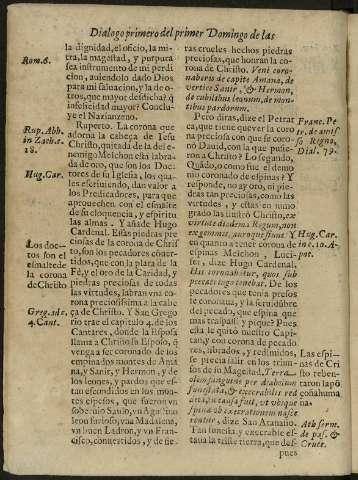 Dialogo primero del primer Domingo de las
la dignidad, el oficio, la mi-
tra, la magestad, y purpura
sea instrumento de mi perdi
cion, auiendolo dado Dios
para mi saluacion, y la de o-
tros, que mayor desdicha? q̃
infelicidad mayor? Conclu-
ye el Nazianzeno.
Ruperto. La corona que
adorna la cabeça de Iesu
Christo, quitada de la del de
monio Melchon està labra
da de oro, que son los Doc-
tores de su Iglesia, los qua-
les escriuiendo, dan valor a
los Predicadores, para que
aprouechen con el esmalte
de su eloquencia, y espiritu
las almas. Y añade Hugo
Cardenal. Estas piedras pre
ciosas de la corona de Chris
to, son los pecadores conuer-
tidos, que con la plata de la
Fè, y el oro de la Caridad, y
piedras preciosas de todas
las virtudes, labran vna co-
rona preciosissima a la cabe
ça de Christo. Y San Grego
rio trae el capitulo 4. de los
Cantares, donde la Esposa
llama a Christo su Esposo, q̃
venga a ser coronado de los
empinados montes de Amà
na, y Sanir, y Hermon, y de
los leones, y pardos que es-
tan escondidos en los mon-
tes
soberuio Saulo, vn Agustino
vna Madalena,
vn buen Ladron, y vn Fran-
cisco, conuertidos, y de fie
Rom. 6.
Rup. Abb.
in Zach. c.
Hug. Car.
Los doc-
tos son el
esmalte de
la corona
de Christo
Greg. in c.
4. Cant.
ras crueles hechos piedras
preciosas, que honran la co-
rona de Christo. Veni coro-
naberis de capite Amana, de
vertice Sanir, & Hermon,
de cubilibus leonum, de mon-
tibus pardorum.
Pero diras, dize el Petrar
ca, que tiene que ver la coro
na preciosa con que se coro-
nò Dauid, con la que pusie-
ron a Christo? Lo segundo,
Quãdo, o como fue el demo
nio coronado de espinas? Y
responde, no ay oro, ni pie
dras tan preciosas, como las
virtudes, y estas en sumo
grado las ilustrò Christo, ex
vertice diadema Regum, non
Y
en quanto a tener corona de
espinas Melchon, Luci-
fer, dize Hugo Cardenal,
His coronabitur, quos sub
peccati iugo tenebat. De los
pecadores que tenia presos
se coronaua, y la seruidũbre
del pecado, que espina que
mas traspasse, y pique? Pues
esta le quitò nuestro Capi-
tan, y con corona de pecado
res, librados, y redimidos,
se precia salir en los triun-
fos de su Magestad. Terra
olim sanguinis per diabolum
funestata, & execrabilis red
vt vbique
spina ob execrationem nasce
rentur, dize San Atanasio.
Tan funesta, y execrable es-
taua la triste tierra, que des-
pues
Franc. Pe
tr. de amiss
so Regno,
Dial. 79.
Hug. Car.
Las espi-
nas de Cri
sto reben-
taron la pō
coña humana
Ath serm.
de pas. &
Cruce.